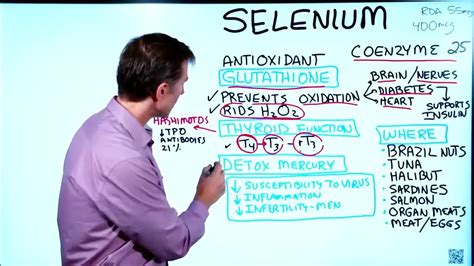 SELENIUM
RDA 55mcg
400mcg
ANTIOXIDANT
GLUTATHIONE
✓ PREVENTS OXIDATION
✓ RIDS H2O2
HASHIMOTOS
↓ TPO
ANTIBODIES
21%
THYROID FUNCTION
✓ T4 → T3 - rT3
DETOX MERCURY
↓ SUSCEPTIBILITY TO VIRUS
↓ INFLAMMATION
↓ INFERTILITY - MEN
COENZYME 25
BRAIN/NERVES
DIABETES
HEART
SUPPORTS
INSULIN
WHERE
• BRAZIL NUTS
• TUNA
• HALIBUT
• SARDINES
• SALMON
• ORGAN MEATS
• MEAT/EGGS